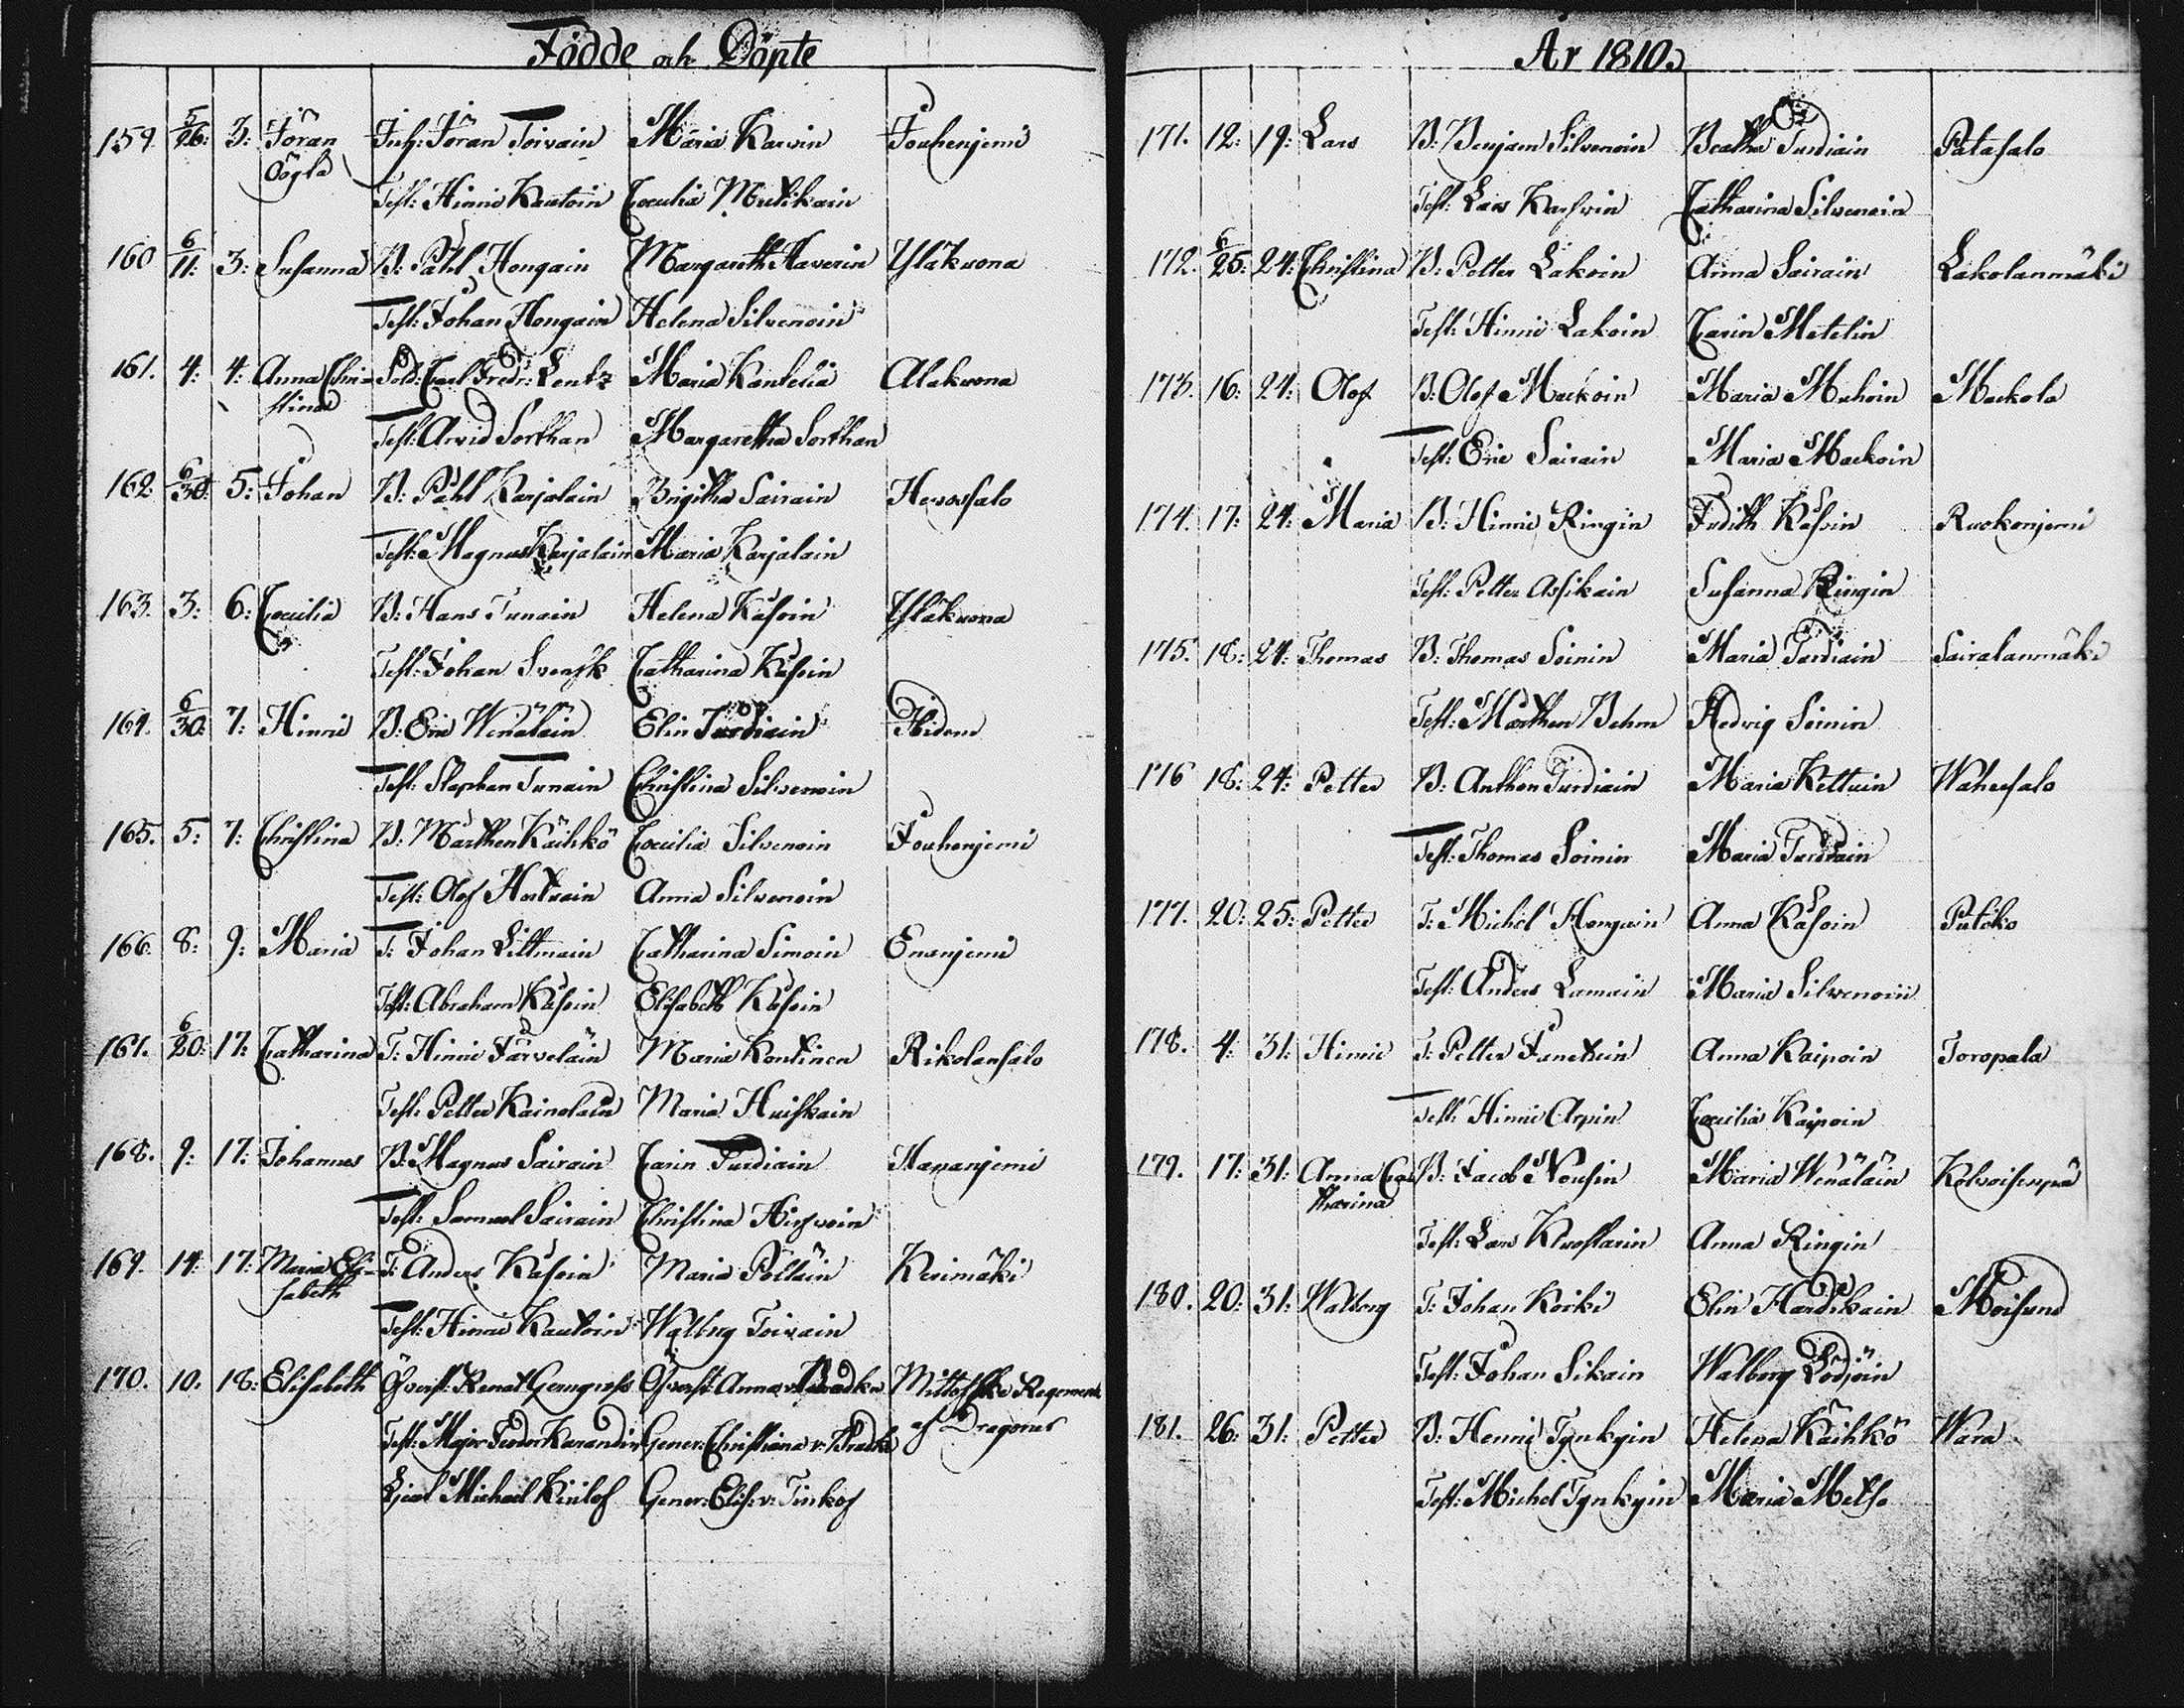 Födde och Döpte
159. 5/26: 3: Jöran Inh: Jöran Toivain Maria Karvin Jouhenjemi
Oögta
Test: Hinric Kautoin Coecilia Mutikain
160 6/11: 3: Susanna B: Påhl Hongain Margareth Haverin Yläkuona
Test: Johan Hongain Helena Silvenoin
161. 4: 4: Anna Chri- Sold: Carl Fredr: Lentz Maria Kantelia Alakuona
stina
Test: Arvid Sorthan Margaretha Sorthan
162: 6/30: 5: Johan B: Påhl Karjalain Brigitha Sairain Herossalo
Test: Magnus Karjalain Maria Karjalain
163. 3: 6: Coecilia B: Hans Tunain Helena Kåsoin Yläkuona
Test: Johan Svensk Catharina Kåsoin
164. 6/30: 7: Hinric B: Eric Wenäläin Elin Turdiain Ibidem
Test: Staphan Tunain Christina Silvenoin
165. 5: 7: Christina B: Mårthen Käihkö Coecilia Silvenoin Jouhenjemi
Test: Olof Hertvain Anna Silvenoin
166. 8: 9: Maria T: Johan Littmain Catharina Simoin Enanjemi
Test: Abraham Kåsoin Elisabeth Kåsoin
167. 6/20: 17: Catharina T: Hinric Järveläin Maria Kontinen Rikolansalo
Test: Petter Kainolain Maria Huiskain
168. 9: 17: Johannes B: Magnus Sairain Carin Turdiain Hapanjemi
Test: Samuel Sairain Christina Hirvoin
169. 14: 17: Maria Eli- T: Anders Kåsoin Maria Pölläin Kerimäki
sabeth
Test: Hinric Kautoin Walborg Toivain
170. 10. 18: Elisabeth Öfverst: Renat Gerngross Öfverst: Anna v: Bradke Mittafske Regement
Test: Major Feodor Karandin Gener: Christiana v: Bradke af Dragoner
Michael Kirilof Gener: Elis: v: Tinkof
År 1810.
171. 12: 19: Lars B: Benjam Silvenoin Beatha Turdiain Patasalo
Test: Lars Karvin Catharina Silvenoin
172. 6/25: 24: Christina B: Petter Lakoin Anna Sairain Lakolanmäki
Test: Hinric Lakoin Carin Metelin
173. 16: 24: Olof B: Olof Mackoin Maria Muhoin Mackola
Test: Eric Sairain Maria Mackoin
174. 17: 24: Maria B: Hinric Ringin Judith Kåsoin Ruokonjemi
Test: Petter Assikain Susanna Ringin
175. 18: 24: Thomas B: Thomas Soinin Maria Turdiain Sairalanmäki
Test: Mårthen Behm Hedvig Soinin
176 18: 24: Petter B: Anthon Turdiain Maria Kettuin Wahersalo
Test: Thomas Soinin Maria Turdiain
177. 20: 25: Petter T: Michel Hongain Anna Kåsoin Putikko
Test: Anders Lamain Maria Silvenoin
178. 4: 31: Hinric T: Petter Janatuin Anna Kaipoin Toropala
Test: Hinric Arpin Coecilia Kaipoin
179. 17: 31: Anna Ca- B: Jacob Nousin Maria Wenäläin Kolvoisenpä
tharina
Test: Lars Kuostarin Anna Ringin
180. 20: 31: Walborg T: Johan Koiki Elin Hardikain Moisund
Test: Johan Sikain Walborg Lödjöin
181. 26: 31: Petter B: Henric Tynkyin Helena Käihkö Wara
Test: Michel Tynkyin Maria Metso